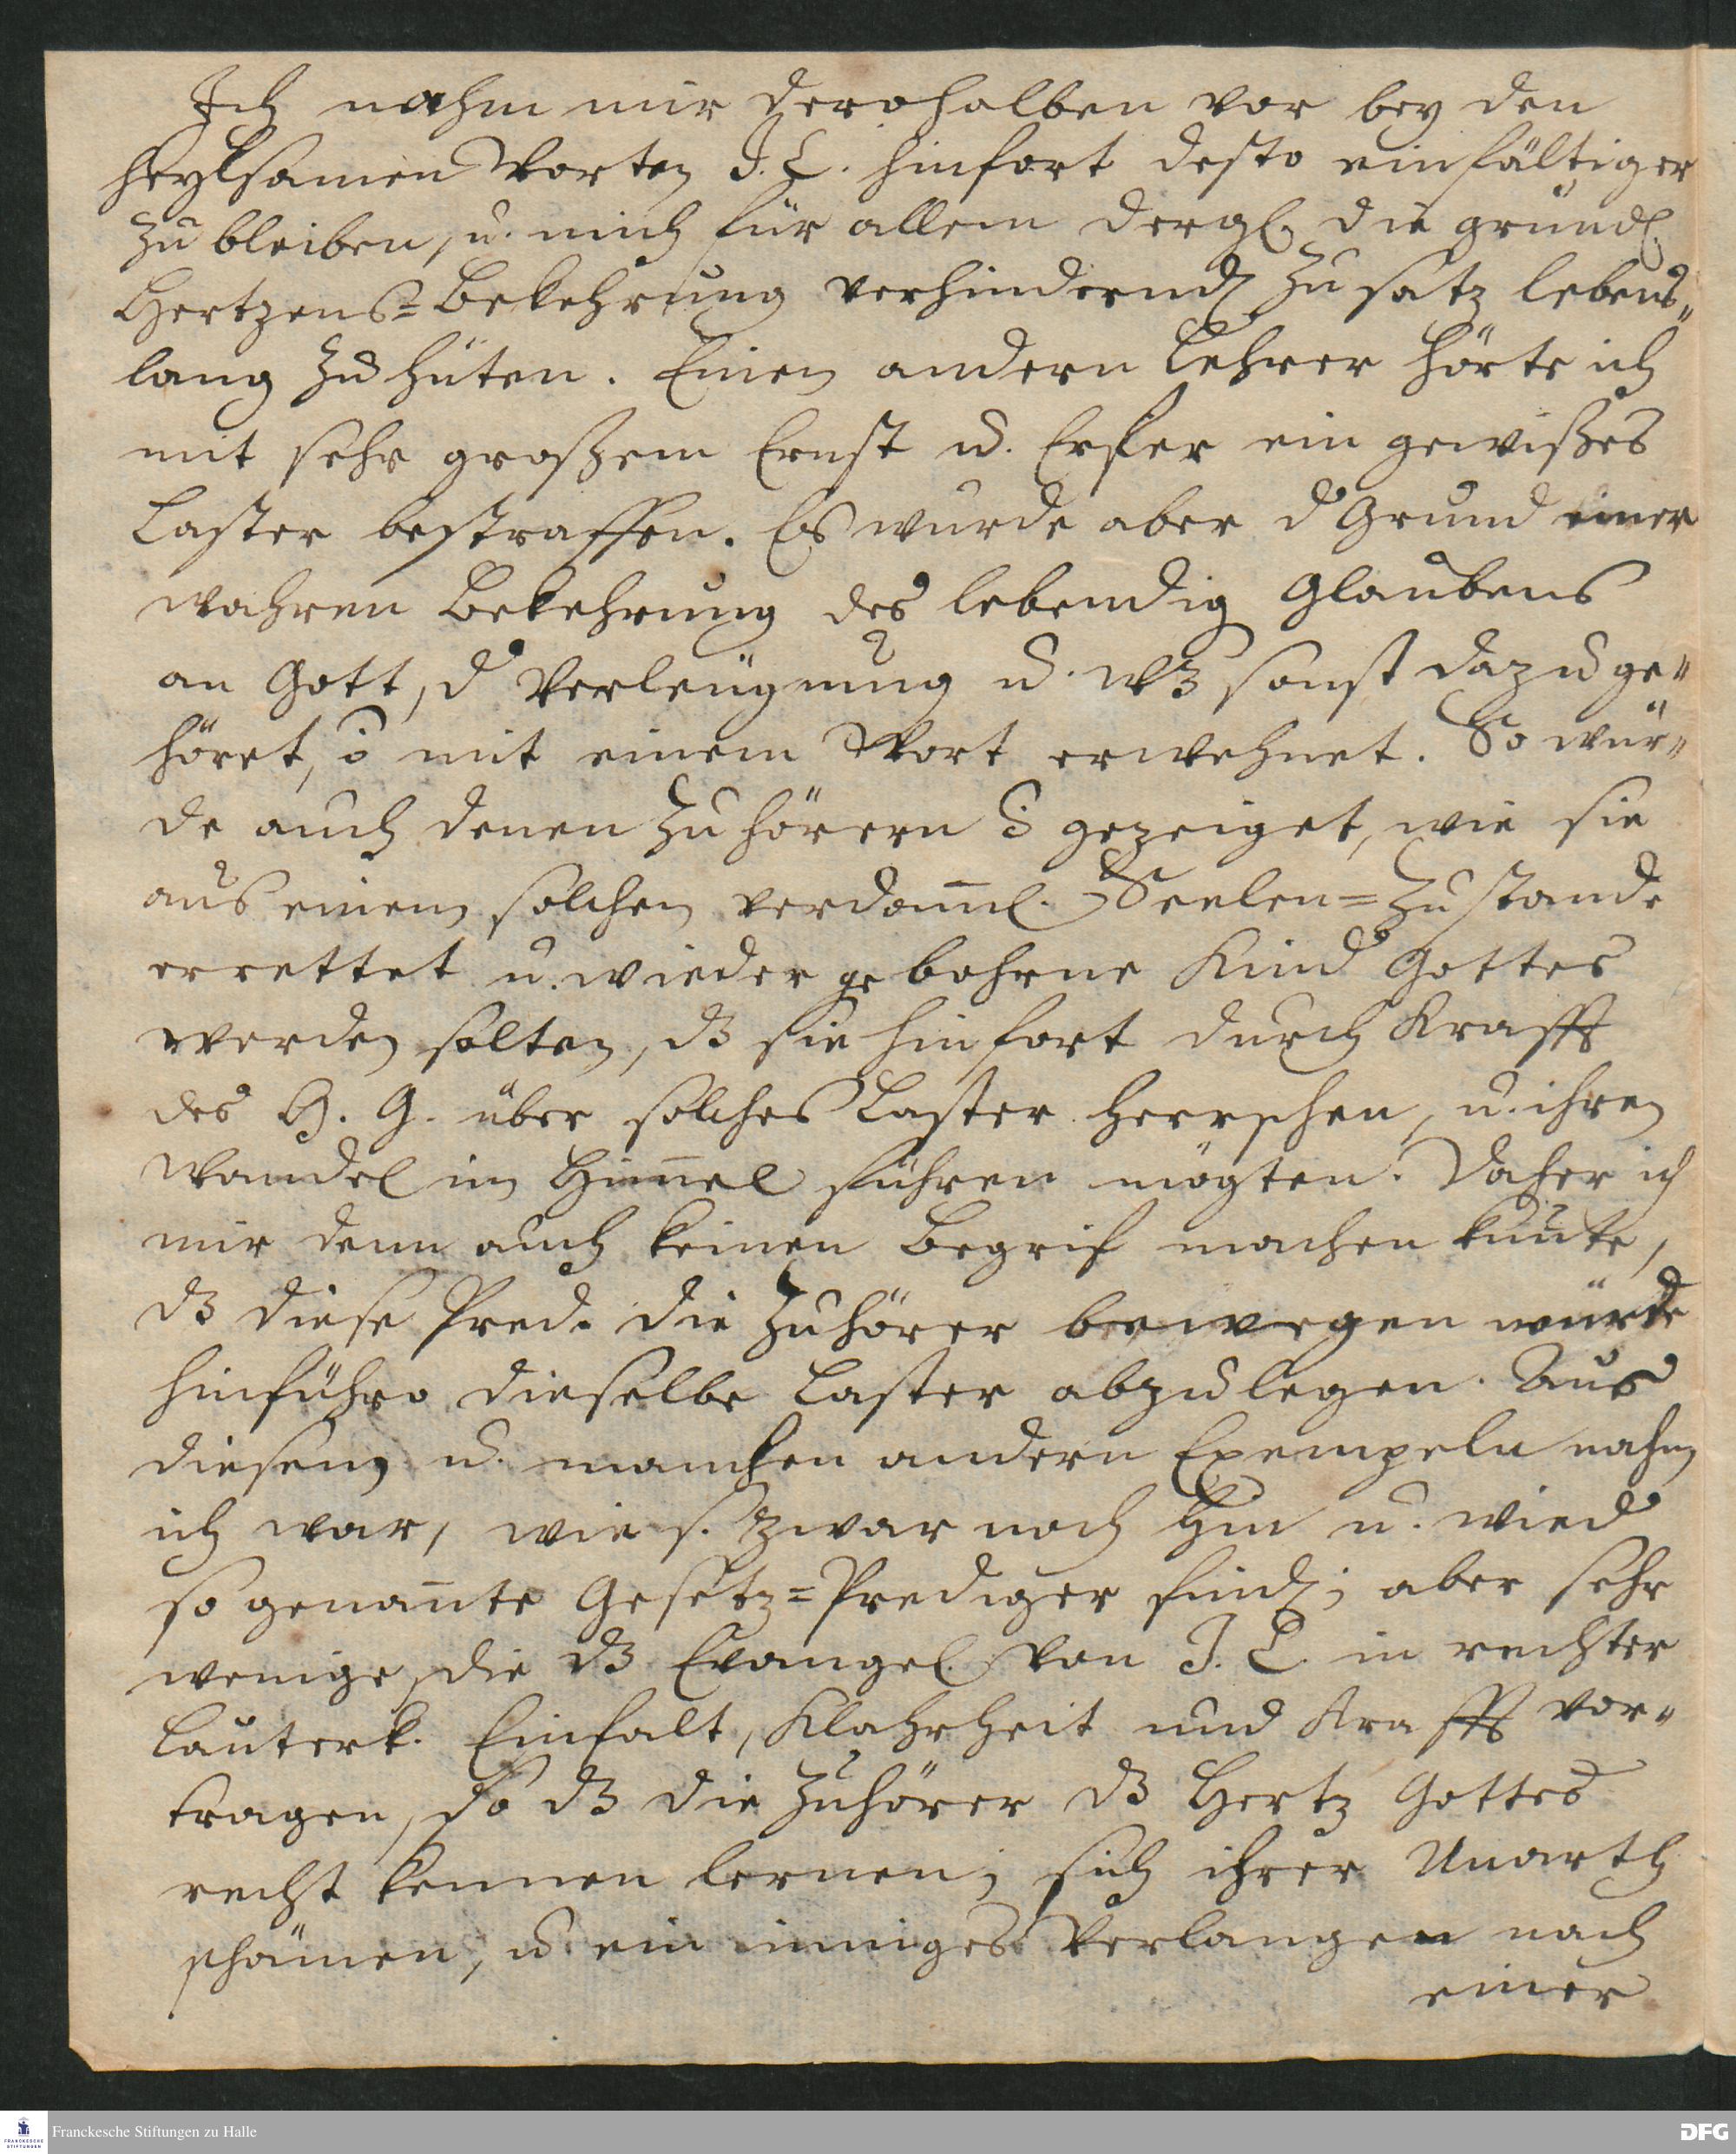 Ich nahm mir derohalben vor bey den
heylsamen Worten J. C. hinfort desto einfältiger
zu bleiben, u. mich für allem dergl. die gründl.
Hertzens-Bekehrung verhindernd. Zusatz lebens-
lang zu hüten. Einen andern Lehrer hörte ich
mit sehr großem Ernst u. Eyfer ein gewißes
Laster bestraffen. Es wurde aber d Grund einer
wahren Bekehrung des lebendig Glaubens
an Gott, d Verleugnung u. wz sonst dazu ge-
höret, õ mit einem Wort erwehnet. So wur-
de auch denen Zuhörern õ gezeiget, wie sie
aus einem solchen verdam̄l. Seelen-Zustande
errettet u. wieder gebohrne Kind Gottes
werden solten, dz sie hinfort durch Krafft
des H. G. über solches Laster herrschen, u. ihren
Wandel im Him̄el führen mögten. Daher ich
mir denn auch keinen Begrif machen kunte,
dz diese Pred. die Zuhörer bewegen würde
hinführo dieselbe Laster abzulegen. Aus
diesem u. manchen andern Exempeln nahm
ich war, wie s. zwar noch hin u. wied
so genan̄te Gesetz-Prediger find; aber sehr
wenige, die dz Evangel. von J. C. in rechter
Lauterk. Einfalt, Klahrheit und Krafft vor-
tragen, so dz die Zuhörer dz Hertz Gottes
recht kennen lernen; sich ihrer Unarth
schämen, u. ein inniges Verlangen nach
einer
Franckesche Stiftungen zu Halle
FRANCKESCHE STIFTUNGEN
DFG